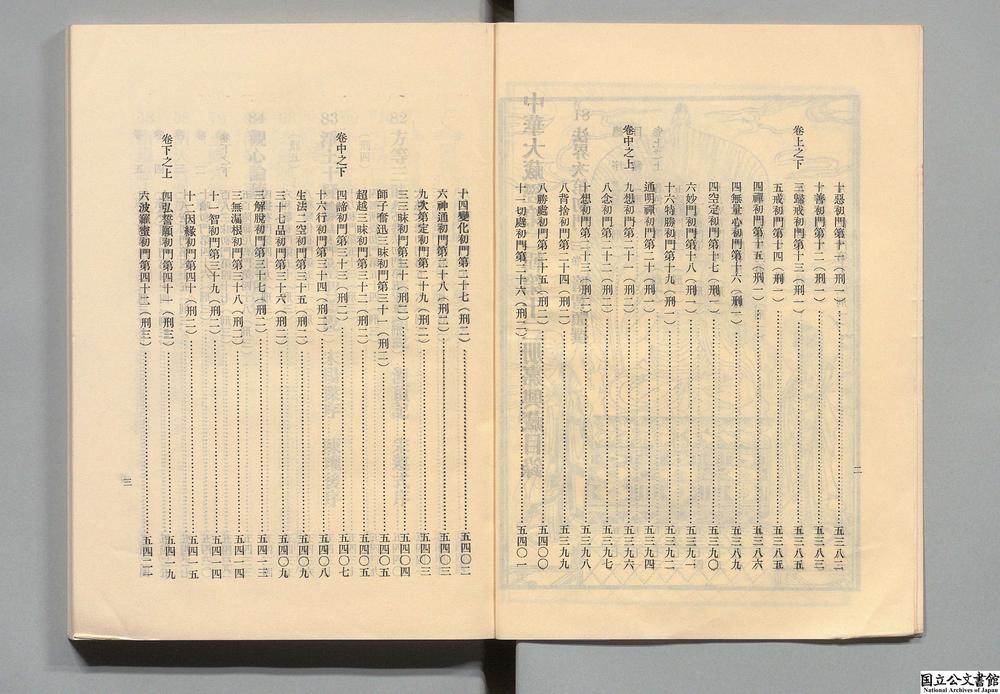 十惡初門第十一(刑一)……五三八二
十善初門第十二(刑一)……五三八三
卷上之下 三歸戒初門第十三(刑一)……五三八五
五戒初門第十四(刑一)……五三八五
四禪初門第十五(刑一)……五三八六
四無量心初門第十六(刑一)……五三八九
四空定初門第十七(刑一)……五三九〇
六妙門初門第十八(刑一)……五三九一
十六特勝初門第十九(刑一)……五三九二
通明禪初門第二十(刑一)……五三九四
卷中之上 九想初門第二十一(刑二)……五三九六
八念初門第二十二(刑二)……五三九七
十想初門第二十三(刑二)……五三九八
八背捨初門第二十四(刑二)……五三九九
八勝處初門第二十五(刑二)……五四〇〇
十一切處初門第二十六(刑二)……五四〇一
二
十四變化初門第二十七(刑二)……五四〇二
六神通初門第二十八(刑二)……五四〇三
九次第定初門第二十九(刑二)……五四〇三
三三昧初門第三十(刑二)……五四〇四
師子奮迅三昧初門第三十一(刑二)……五四〇五
超越三昧初門第三十二(刑二)……五四〇六
卷中之下 四諦初門第三十三(刑二)……五四〇七
十六行初門第三十四(刑二)……五四〇八
生法二空初門第三十五(刑二)……五四〇九
三十七品初門第三十六(刑二)……五四〇九
三解脫初門第三十七(刑二)……五四一三
三無漏根初門第三十八(刑二)……五四一四
十一智初門第三十九(刑二)……五四一四
十二因緣初門第四十(刑二)……五四一五
卷下之上 四弘誓願初門第四十一(刑三)……五四一九
六波羅蜜初門第四十二(刑三)……五四二一
三
国立公文書館
National Archives of Japan